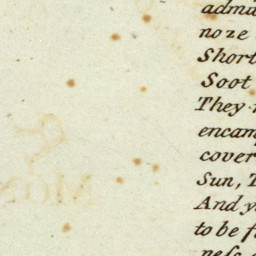 admi
noze
Short
Soot
They
encam
cover
Sun, T
And y
to be f